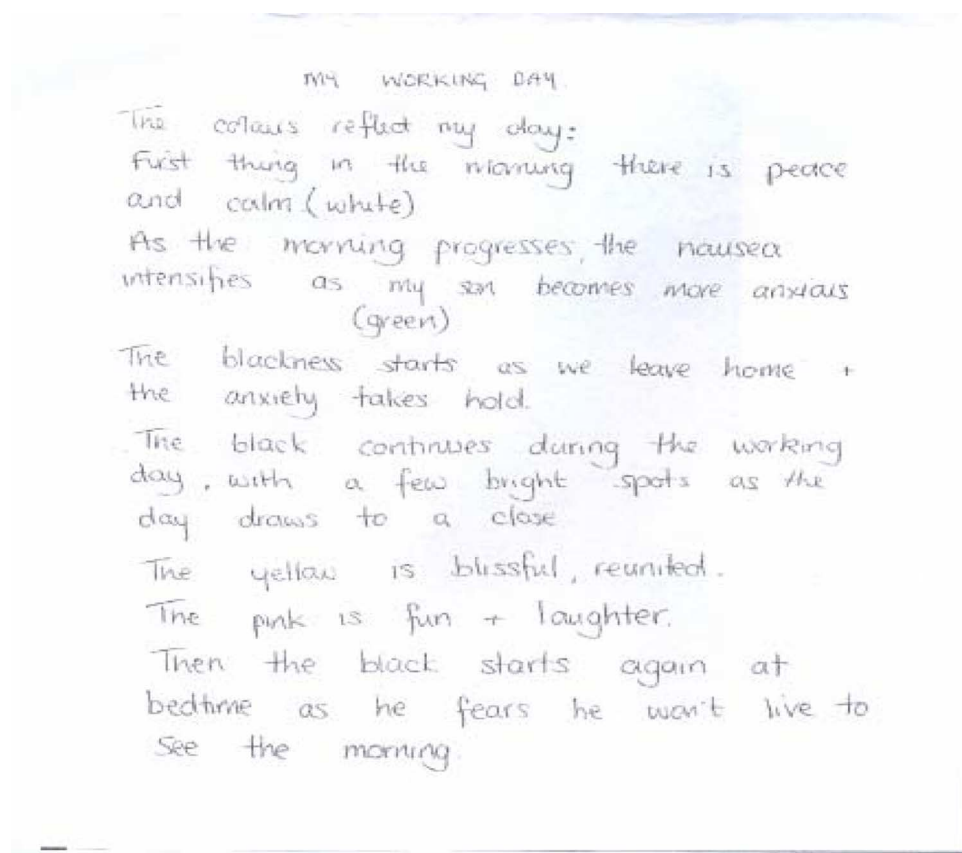 MY WORKING DAY.
The colours reflect my day:
First thing in the morning there is peace
and calm (white)
As the morning progresses, the nausea
intensifies as my son becomes more anxious
(green)
The blackness starts as we leave home +
the anxiety takes hold.
The black continues during the working
day, with a few bright spots as the
day draws to a close
The yellow is blissful, reunited.
The pink is fun + laughter.
Then the black starts again at
bedtime as he fears he won't live to
see the morning.